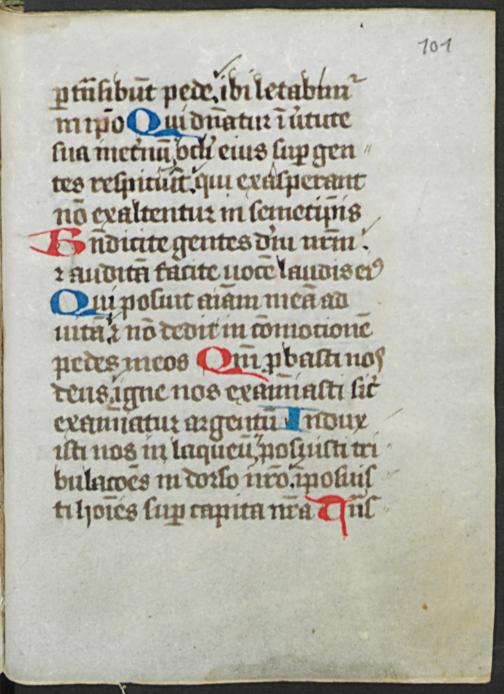 101
ꝑtn̄sibūt pede, ibi letabimur
in ip̄o Qui dn̄atur ī ütute
sua inet'nū, oclī eius suꝑ gen
tes respiciūt, qui exasperant
nō exaltentur in semetip̄is
Bn̄dicite gentes dm̄ nrm̄
⁊ auditā facite uocē laudis ei⁹
Qui posuit aīam meā ad
uitā, ⁊ nō dedit in cōmotionē
pedes meos Qm̄ ꝓbasti nos
deus, igne nos examīasti sic̄
examinatur argentū Indux
isti nos in laqueū, posuisti tri
bulacōes in dorso nr̄o, īposuis
ti hoīes suꝑ capita nr̄a